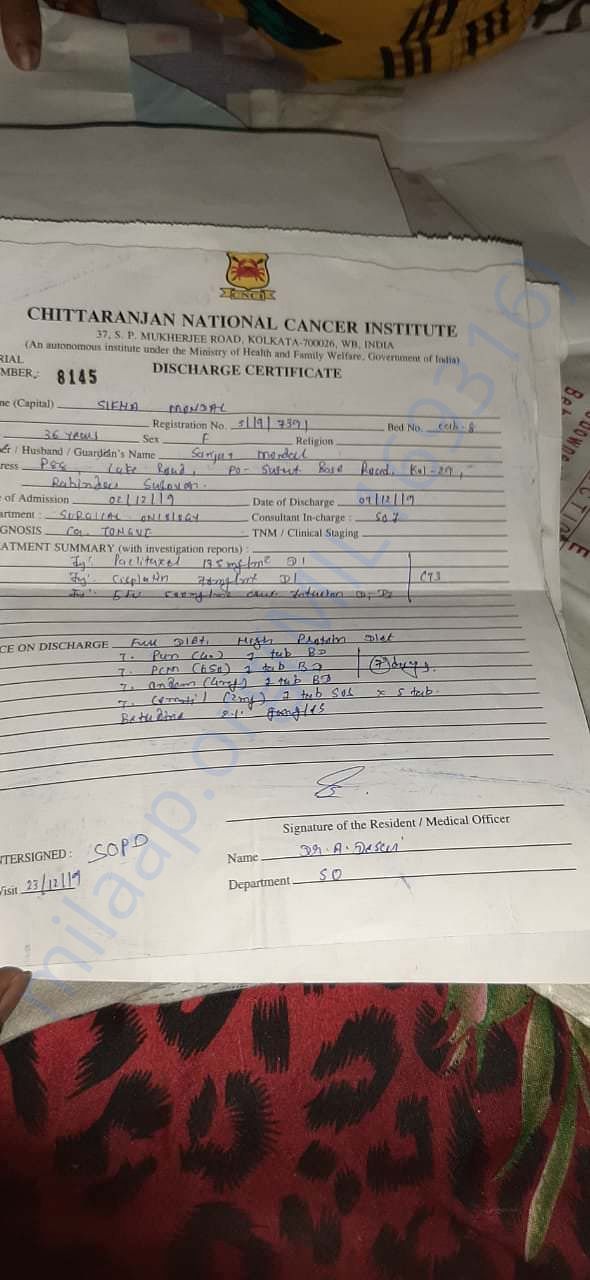 CNCI
CHITTARANJAN NATIONAL CANCER INSTITUTE
37, S. P. MUKHERJEE ROAD, KOLKATA-700026, WB, INDIA
(An autonomous institute under the Ministry of Health and Family Welfare, Government of India)
RIAL
MBER,: 8145 DISCHARGE CERTIFICATE
ne (Capital) SIKHA MONDAL
Registration No. S/19/7391 Bed No.
36 years Sex F Religion
er / Husband / Guardein's Name Sanjay Mondal
ress P88, Lake Road, PO- Road, Kol-29,
of Admission 02/12/19 Date of Discharge 07/12/19
artment : SURGICAL ONCOLOGY Consultant In-charge : SO
GNOSIS Ca. TONGUE TNM / Clinical Staging
ATMENT SUMMARY (with investigation reports) :
Inj. Paclitaxel 175mg/m² D1
Inj. Cisplatin D1
Inj. 5FU Infusion
CE ON DISCHARGE Full Diet, High Protein Diet
T. Pan (40) 1 tab BD
T. PCM (650) 1 tab BD
T. (4mg) 1 tab BD
7 days.
T. (2mg) 1 tab SOS x 5 tab.
Betadine
Signature of the Resident / Medical Officer
NTERSIGNED : SOPD
Name Dr. A.
Visit 23/12/19
Department SO
milaap.org